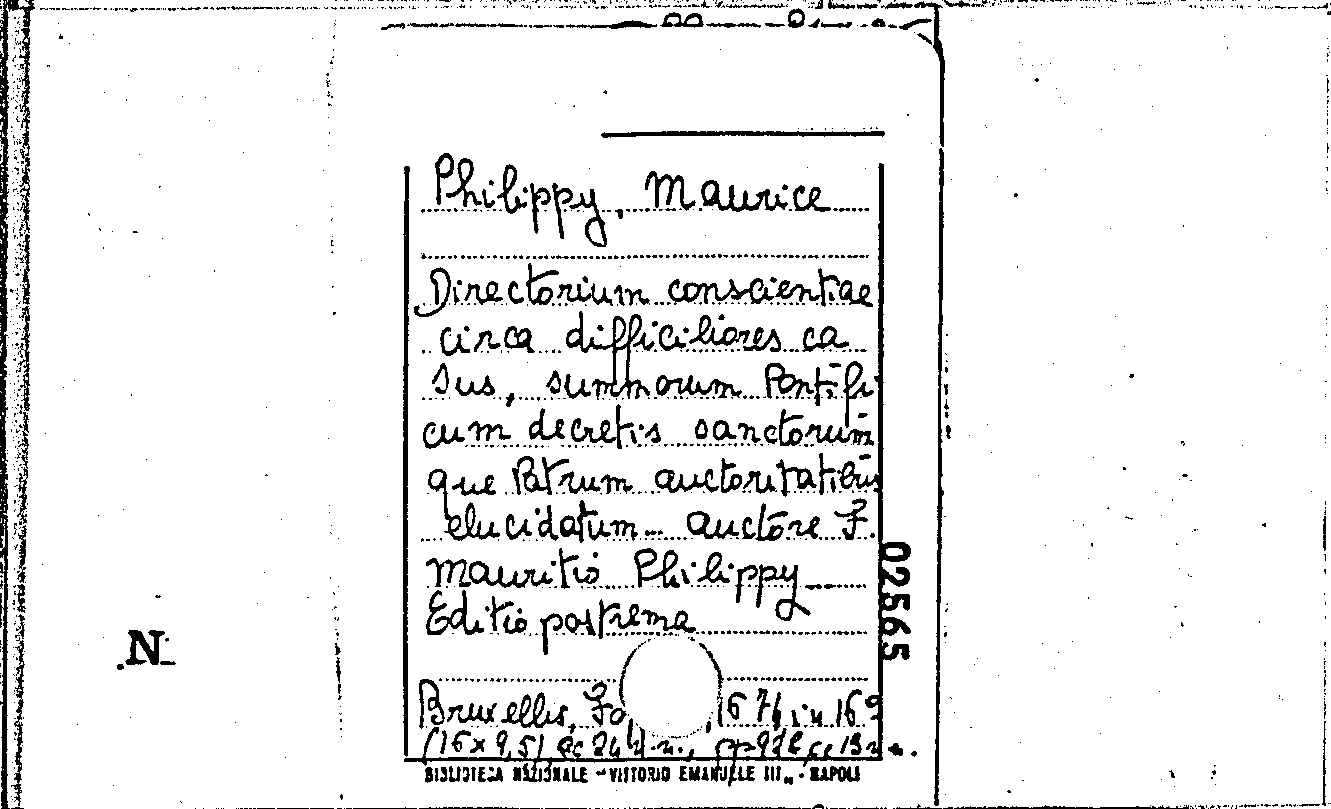 Philippy, Maurice
Directorium conscientiae
circa difficiliores ca
sus, summorum Pontifi
cum decretis sanctorum
que Patrum auctoritatibus
elucidatum... auctore F.
Mauritio Philippy
Editio postrema
Bruxellis, in 16º
(16 x 9,5)
BIBLIOTECA NAZIONALE - VITTORIO EMANUELE III„ - NAPOLI
02565
N